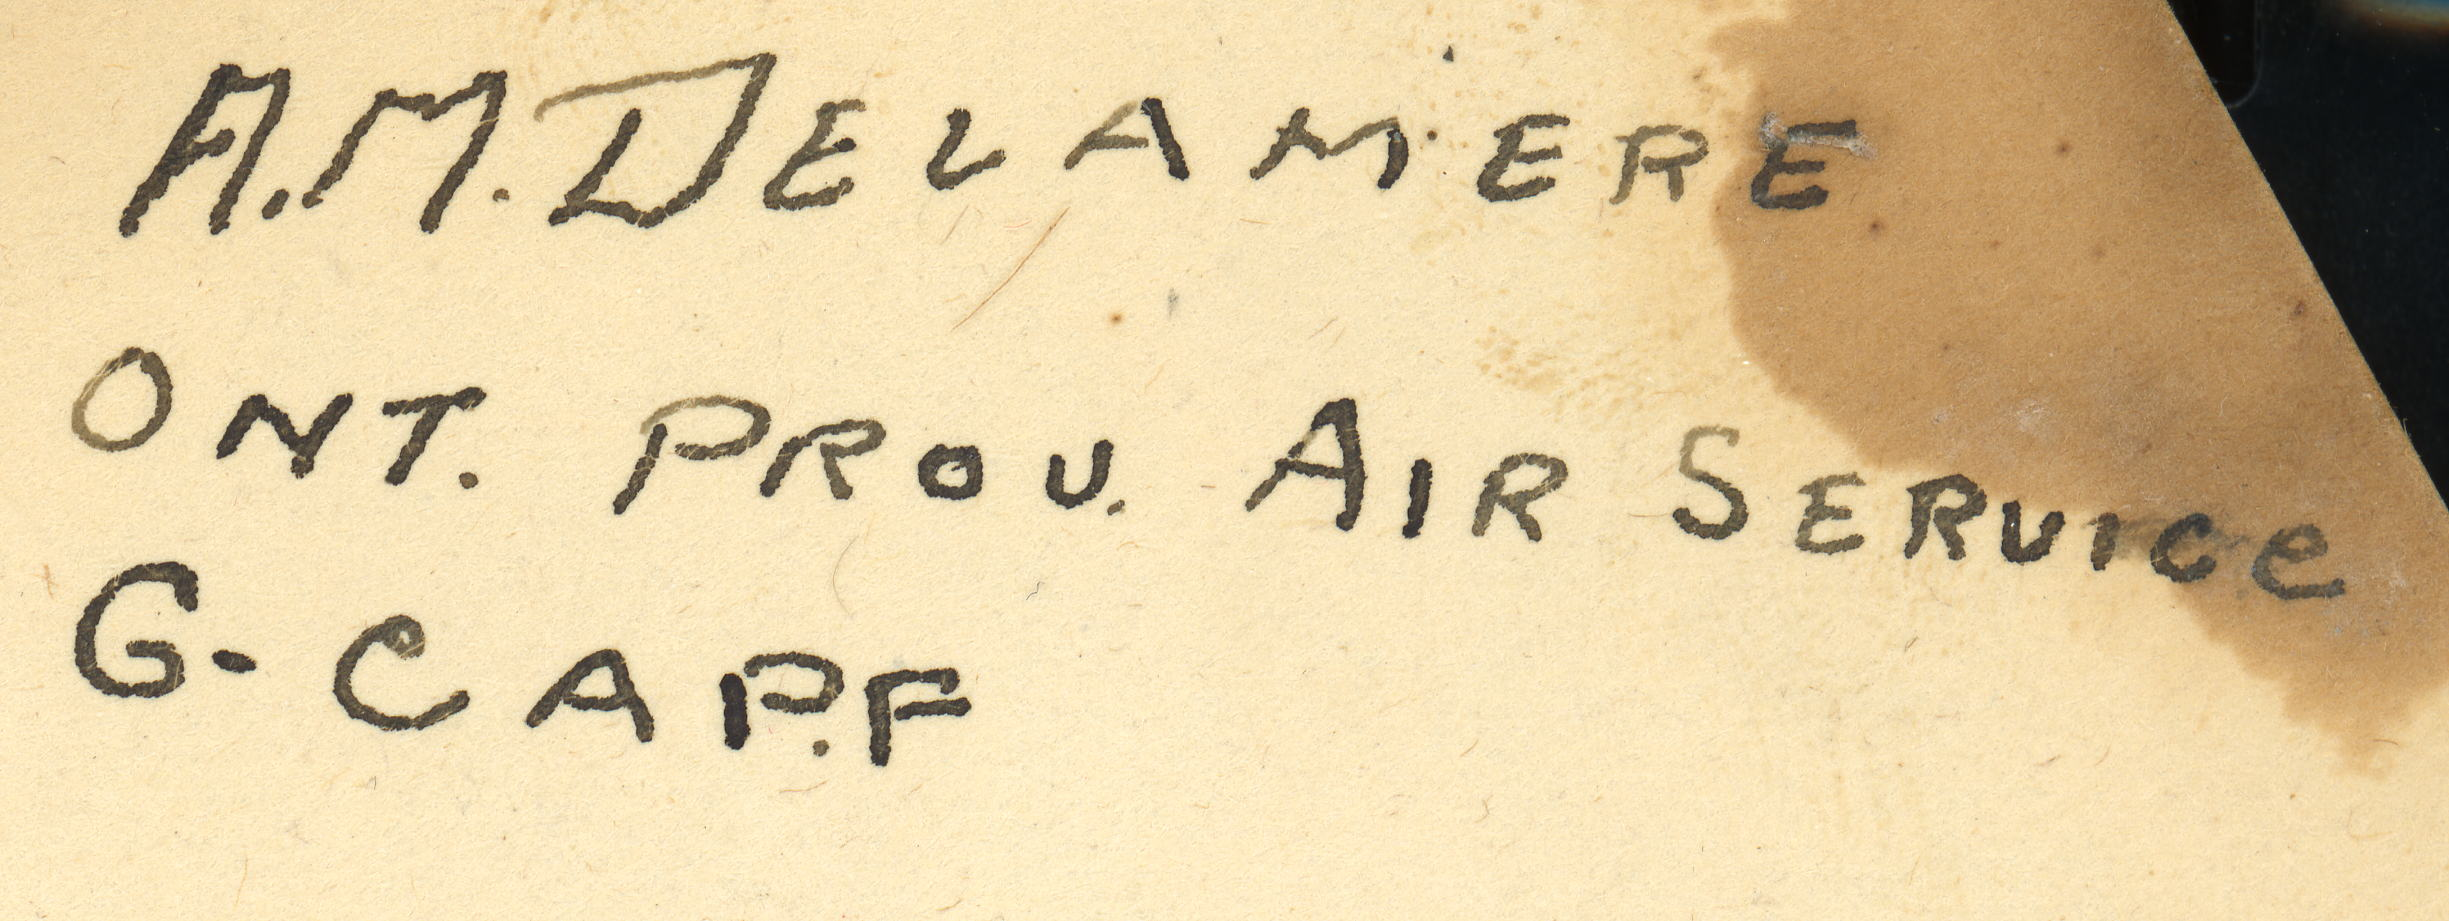 A.M. DELAMERE
ONT. PROV. AIR SERVICE
G-CAP.F